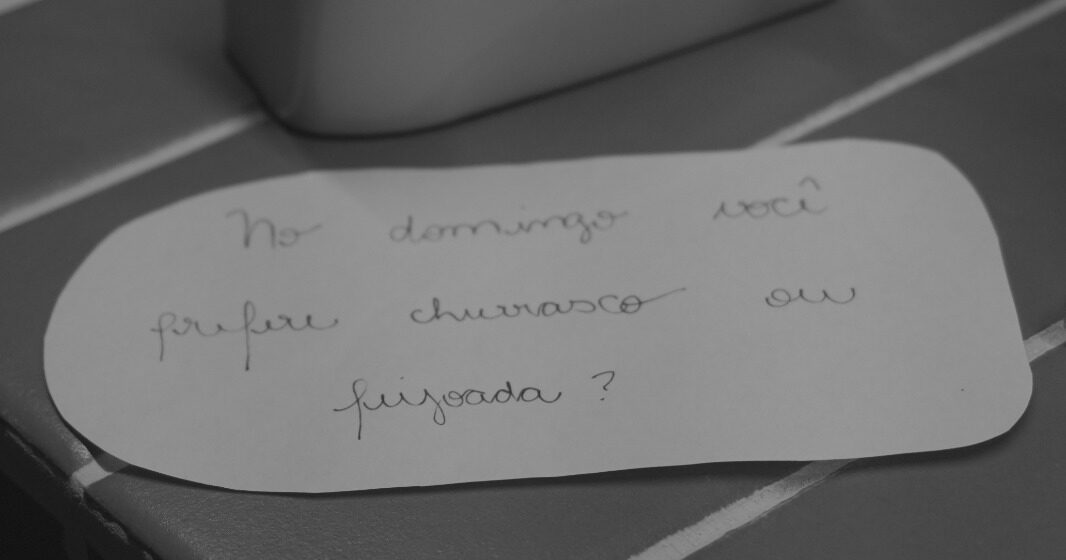 No domingo você
prefere churrasco ou
feijoada ?